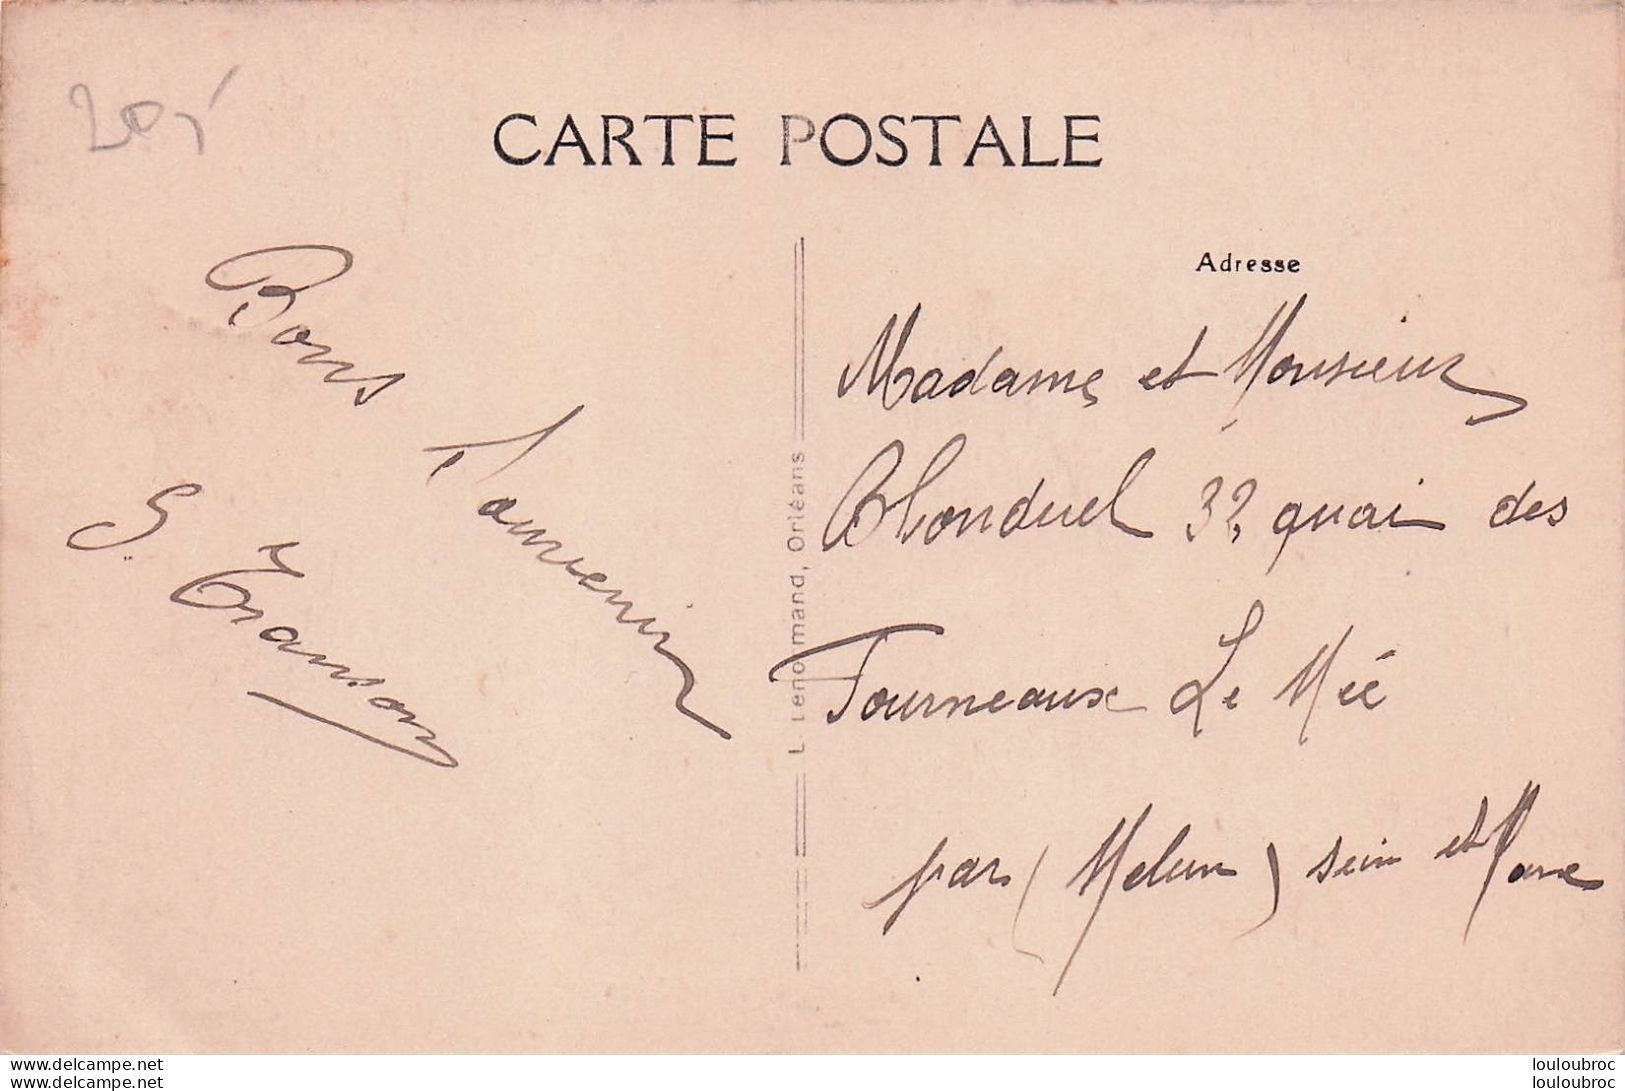 CARTE POSTALE
Bons
Souvenir
G. Transon
L. Lenormand, Orléans
Adresse
Madame et Monsieur
Blonduel 32 quai des
Fourneaux Le Mée
par (Melun) sein et Marne
www.delcampe.net
louloubroc
www.delcampe.net
louloubroc